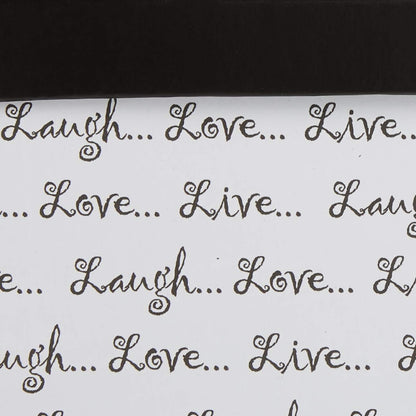 Laugh... Love... Live...
... Love... Live... Laug
e... Laugh... Love... Li
augh... Love... Live...